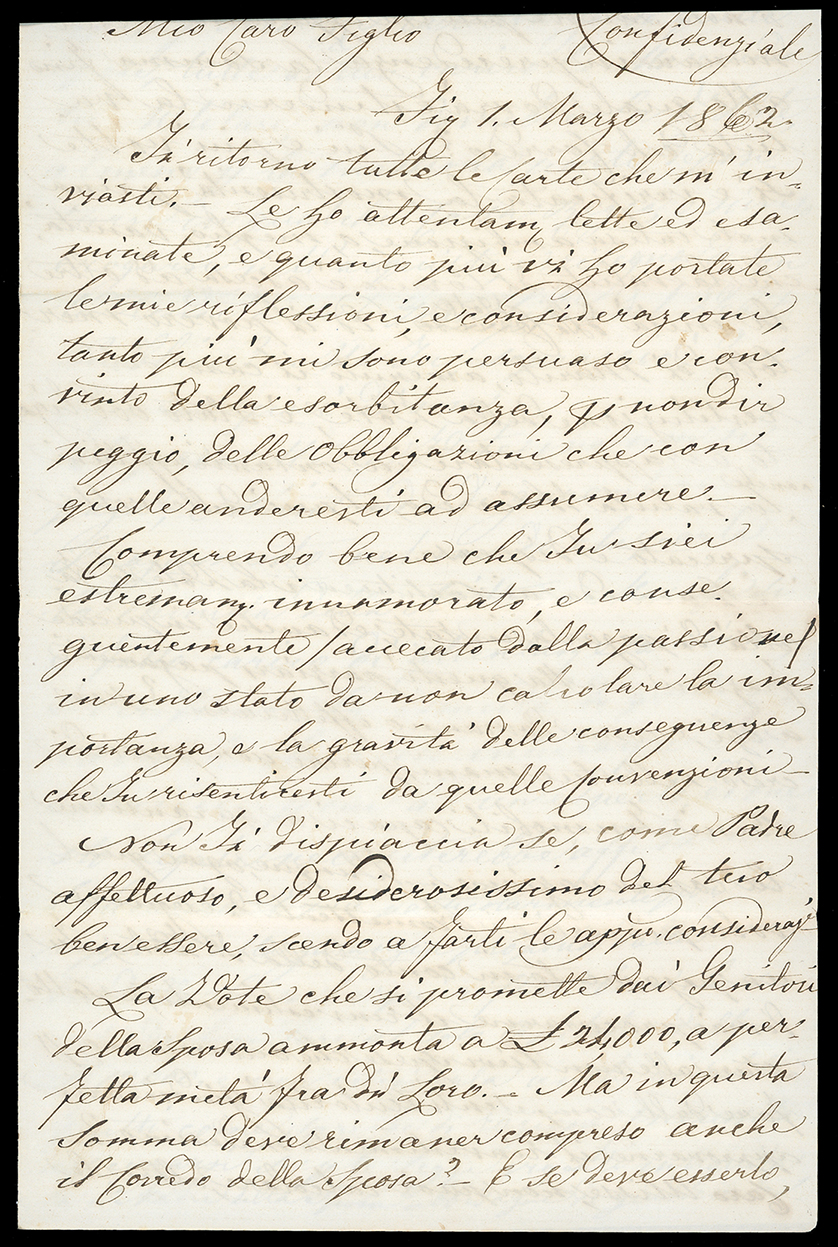 Mio Caro Figlio Confidenziale
Fig 1. Marzo 1862
Ti ritorno tutte le Carte che m' in-
viasti. - Le ho attentam. lette ed esa-
minate, e quanto più vi ho portate
le mie riflessioni, e considerazioni,
tanto più mi sono persuaso e con-
vinto della esorbitanza, p non dir
peggio, delle Obbligazioni che con
quelle anderesti ad assumere. -
Comprendo bene che Tu siei
estremam. innamorato, e conse-
guentemente /accecato dalla passione/
in uno stato da non calcolare la im-
portanza, e la gravità delle conseguenze
che Tu risentiresti da quelle Convenzioni -
Non Ti dispiaccia se, come Padre
affettuoso, e desiderosissimo del tuo
ben essere, scendo a farti le appu. consideraz.
La Dote che si promette dai Genitori
della Sposa ammonta a £ 24,000, a per-
fetta metà fra di Loro. - Ma in questa
Somma deve rimaner compreso anche
il Corredo della Sposa? - E se deve esserlo,